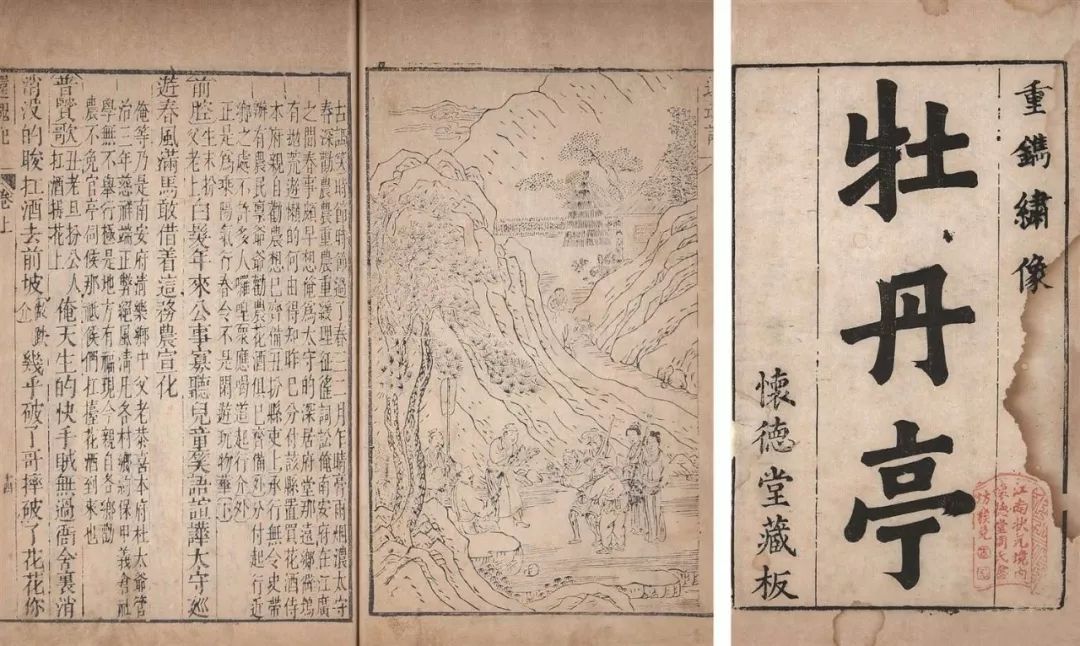 重鐫繡像
牡丹亭
懷德堂藏板
江南狀元境內
古調笑時節時節過了春三二月乍晴膏雨烟濃太守
春深勸農農重農重緩理征徭詞訟俺南安府在江廣
之間春事頗早想俺為太守的深居府堂那遠鄉僻塢
有拋荒游懶的何由得知昨已分付該縣置買花酒待
本府親自勸農想已齊備丑扮縣吏上承行無令史帶
辦有農民稟爺爺勸農花酒俱已齊備外分付起行近
鄉之處不許多人囉唣衆應喝道起行介外
正是為乘陽氣行春令不是閒遊玩物華下
前腔生末扮父老上白髮年來公事寡聽兒童笑語諠譁太守巡
遊春風滿馬敢借着這務農宣化
俺等乃是南安府清樂鄉中父老恭喜本府杜太爺管
治三年慈祥端正弊絕風清凡各村鄉約保甲義倉社
學無不舉行極是地方有福現今親自各鄉勸
農不免官亭伺候那祗候們扛擡花酒到來也
普賢歌丑老旦扮公人扛酒提花上俺天生的快手賊無過衙舍裏消
消沒的睃扛酒去前坡做跌介幾乎破了哥摔破了花花你
還魂記 卷上 十四